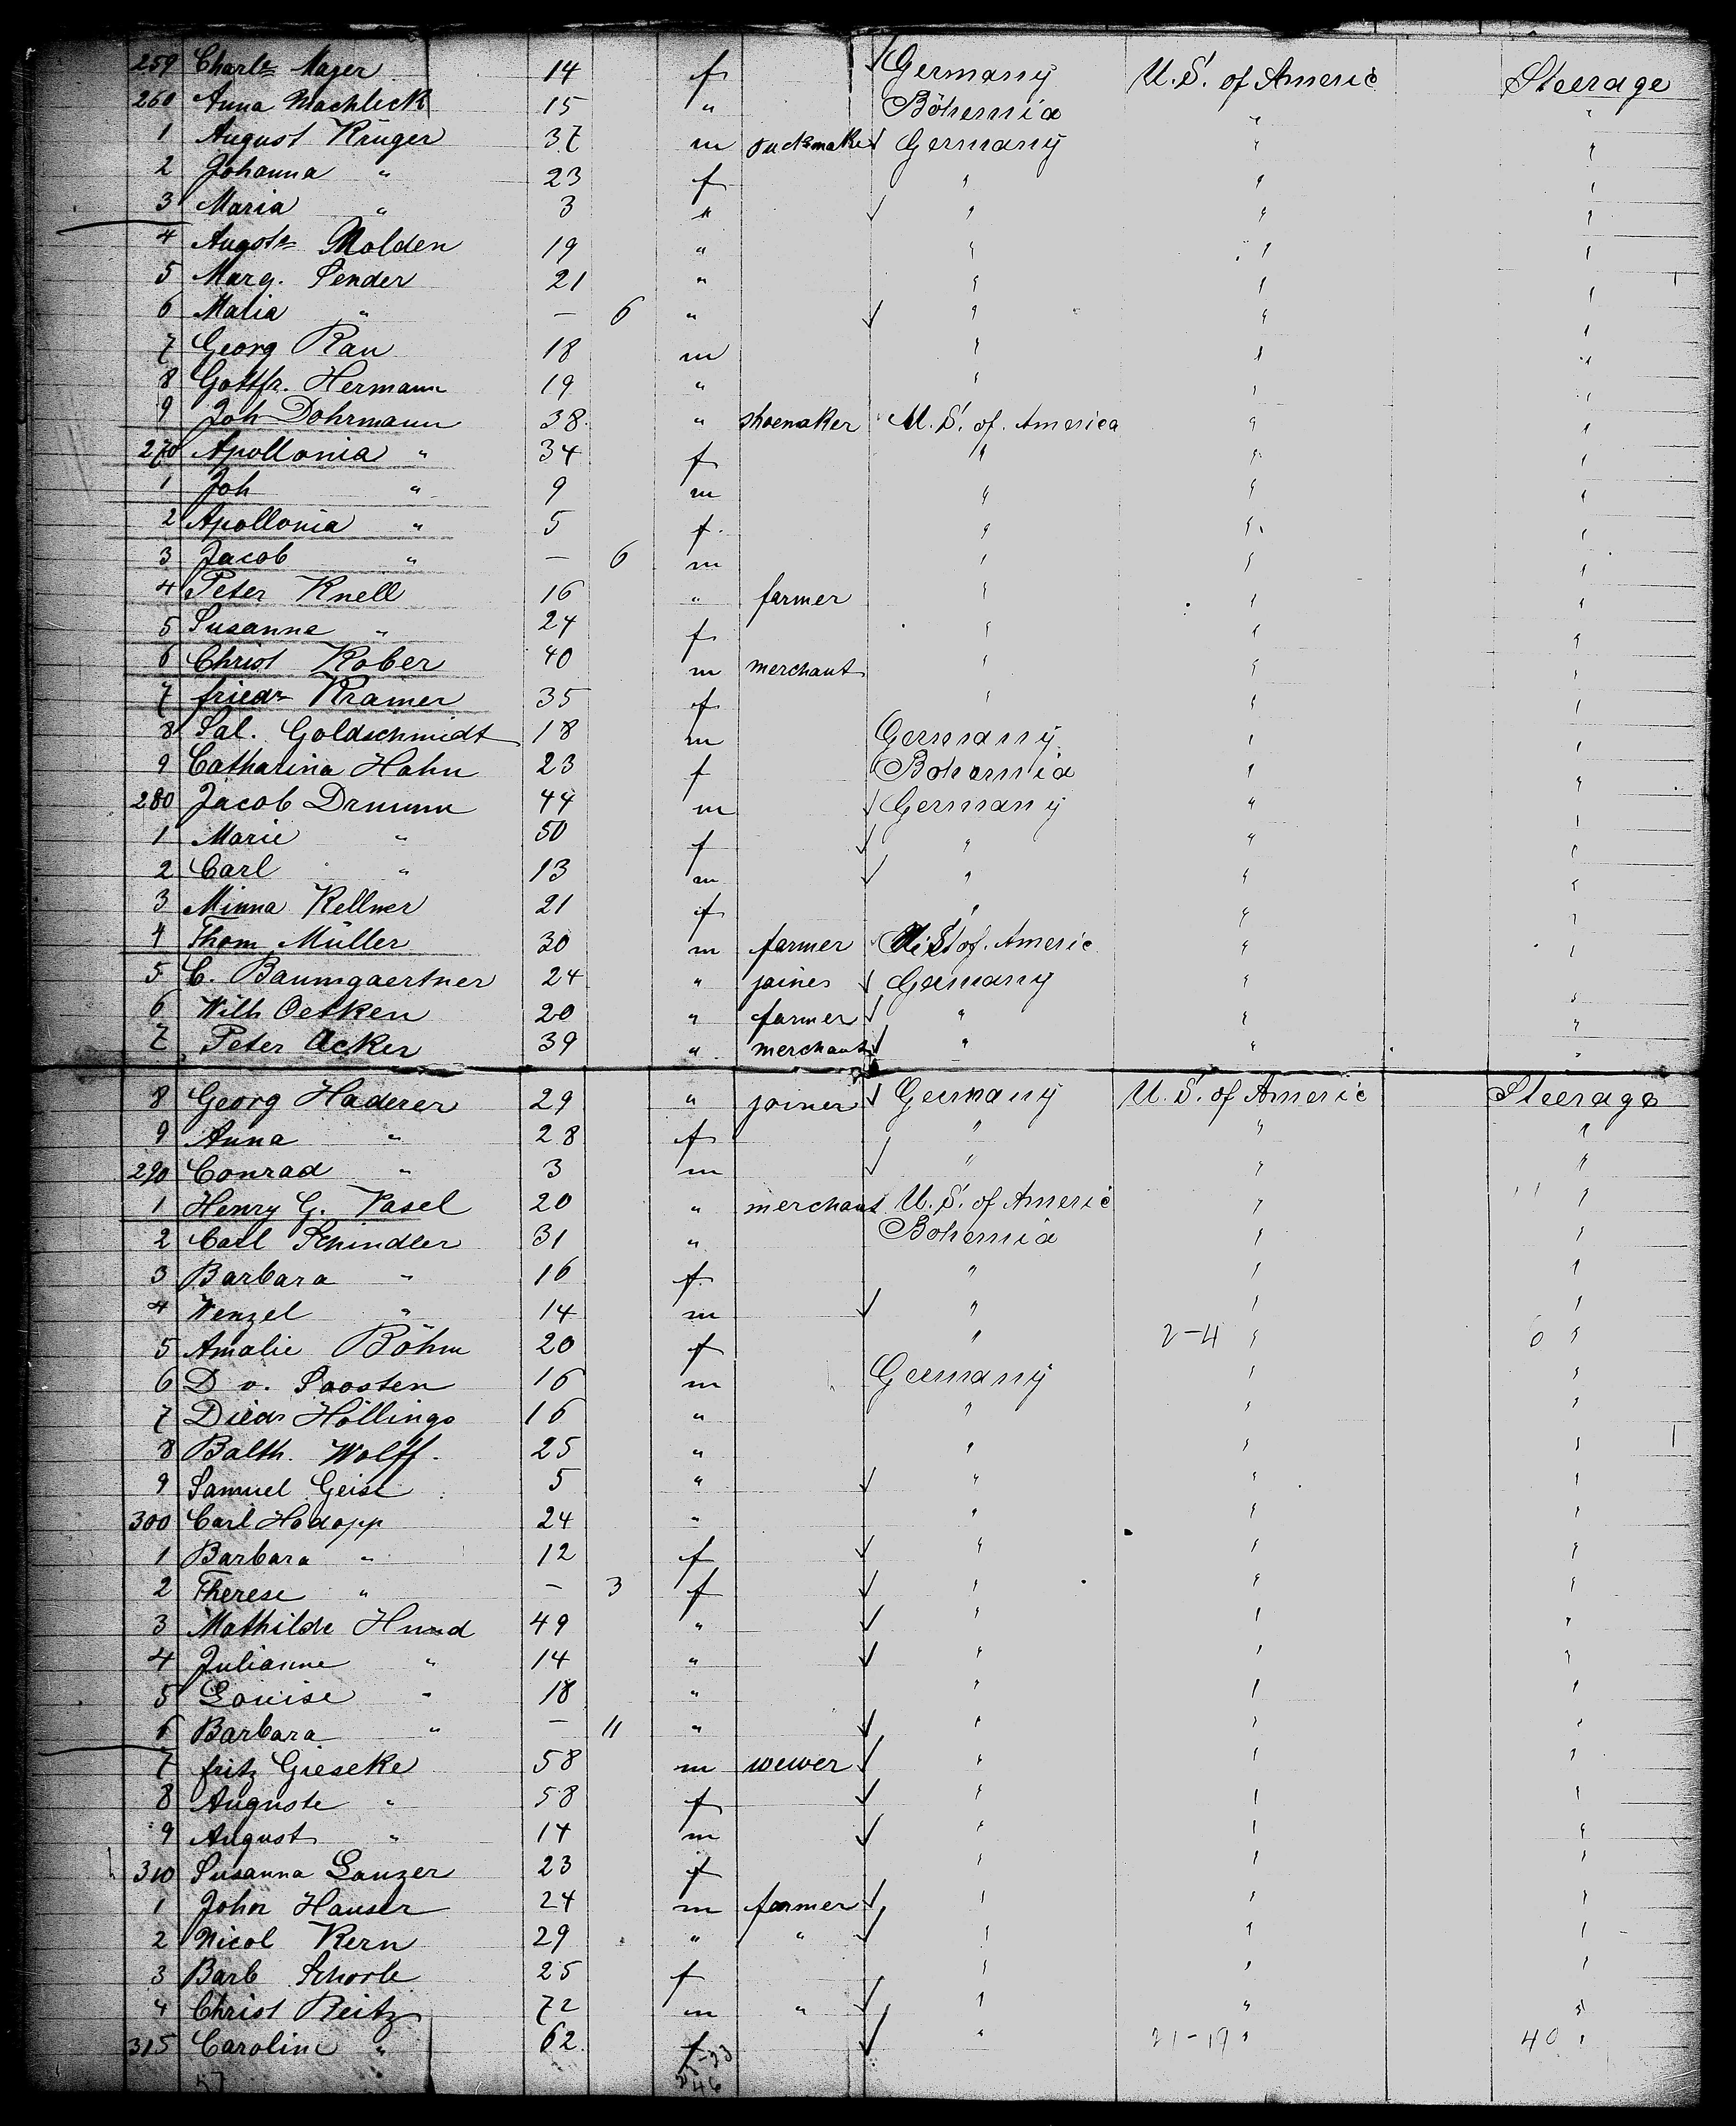 259 Charlte Mayer 14 f Germany U. S. of Americ Steerage
260 Anna Machleck 15 " Böhemia " "
1 August Krüger 37 m Germany " "
2 Johanna " 23 f " " "
3 Maria " 3 " " " "
4 Augste Molden 19 " " " "
5 Marg. Sender 21 " " " "
6 Maria " — 6 " " " "
7 Georg Rau 18 m " " "
8 Gottfr. Hermann 19 " " " "
9 Joh Dohrmann 38 " shoemaker U. S. of America " "
270 Apollonia " 34 f " " "
1 Joh " 9 m " " "
2 Apollonia " 5 f " " "
3 Jacob " — 6 m " " "
4 Peter Knell 16 " farmer " " "
5 Susanne " 24 f " " "
6 Christ Kober 40 m merchant " " "
7 friedr Kramer 35 f " " "
8 Sal. Goldschmidt 18 m Germany " "
9 Catharina Hahn 23 f Bohemia " "
280 Jacob Drumm 44 m Germany " "
1 Marie " 50 f " " "
2 Carl " 13 m " " "
3 Minna Kellner 21 f " " "
4 Thom Müller 30 m farmer U. S. of. Americ " "
5 C. Baumgaertner 24 " joines Germany " "
6 Wilh Oetken 20 " farmer " " "
7 Peter Acker 39 " merchant " " "
8 Georg Haderer 29 " joiner Germany U. S. of Americ Steerage
9 Anna " 28 f " " "
290 Conrad " 3 m " " "
1 Henry G. Vasel 20 " merchant U. S. of Americ " "
2 Carl Schindler 31 " Bohemia " "
3 Barbara " 16 f " " "
4 Wenzel " 14 m " " "
5 Amalie Böhm 20 f " 2-4 " 0 "
6 D v. Soosten 16 m Germany " "
7 Diedr Höllings 16 " " " "
8 Balth. Wolff. 25 " " " "
9 Samuel Geise 5 " " " "
300 Carl Hodapp 24 " " " "
1 Barbara " 12 f " " "
2 Therese " — 3 f " " "
3 Mathilde Hund 49 " " " "
4 Julianne " 14 " " " "
5 Louise " 18 " " " "
6 Barbara " — 11 " " " "
7 fritz Gieseke 58 m wewer " " "
8 Auguste " 58 f " " "
9 August " 14 m " " "
310 Susanna Lanzer 23 f " " "
1 John Hauser 24 m farmer " " "
2 Nicol Kern 29 " " " " "
3 Barb Schorle 25 f " " "
4 Christ Reitz 72 m " " " "
315 Caroline " 62 f " 21-19 " 40 "
23-23
46
57